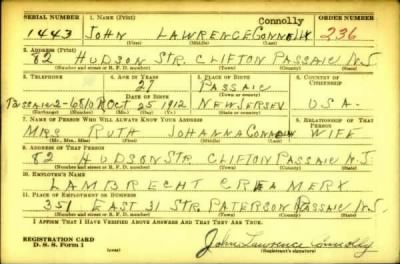 SERIAL NUMBER 1. NAME (Print) Connolly ORDER NUMBER
1443 JOHN LAWRENCE CONNOLLY 236
(First) (Middle) (Last)
2. ADDRESS (Print)
82 HUDSON STR. CLIFTON PASSAIC N.J.
(Number and street or R. F. D. number) (Town) (County) (State)
3. TELEPHONE 4. AGE IN YEARS 5. PLACE OF BIRTH 6. COUNTRY OF CITIZENSHIP
27 PASSAIC
DATE OF BIRTH (Town or county)
PASSAIC 2- OCT 25 1912 NEW JERSEY U.S.A.
(Exchange) (Number) (Mo.) (Day) (Yr.) (State or country)
7. NAME OF PERSON WHO WILL ALWAYS KNOW YOUR ADDRESS 8. RELATIONSHIP OF THAT PERSON
MRS RUTH JOHANNA CONNOLLY WIFE
(Mr., Mrs., Miss) (First) (Middle) (Last)
9. ADDRESS OF THAT PERSON
82 HUDSON STR. CLIFTON PASSAIC N.J.
(Number and street or R. F. D. number) (Town) (County) (State)
10. EMPLOYER'S NAME
LAMBRECHT CREAMERY
11. PLACE OF EMPLOYMENT OR BUSINESS
351 EAST 31 STR. PATERSON PASSAIC N.J.
(Number and street or R. F. D. number) (Town) (County) (State)
I AFFIRM THAT I HAVE VERIFIED ABOVE ANSWERS AND THAT THEY ARE TRUE.
REGISTRATION CARD
D. S. S. Form 1 (over) John Lawrence Connolly
(Registrant's signature)